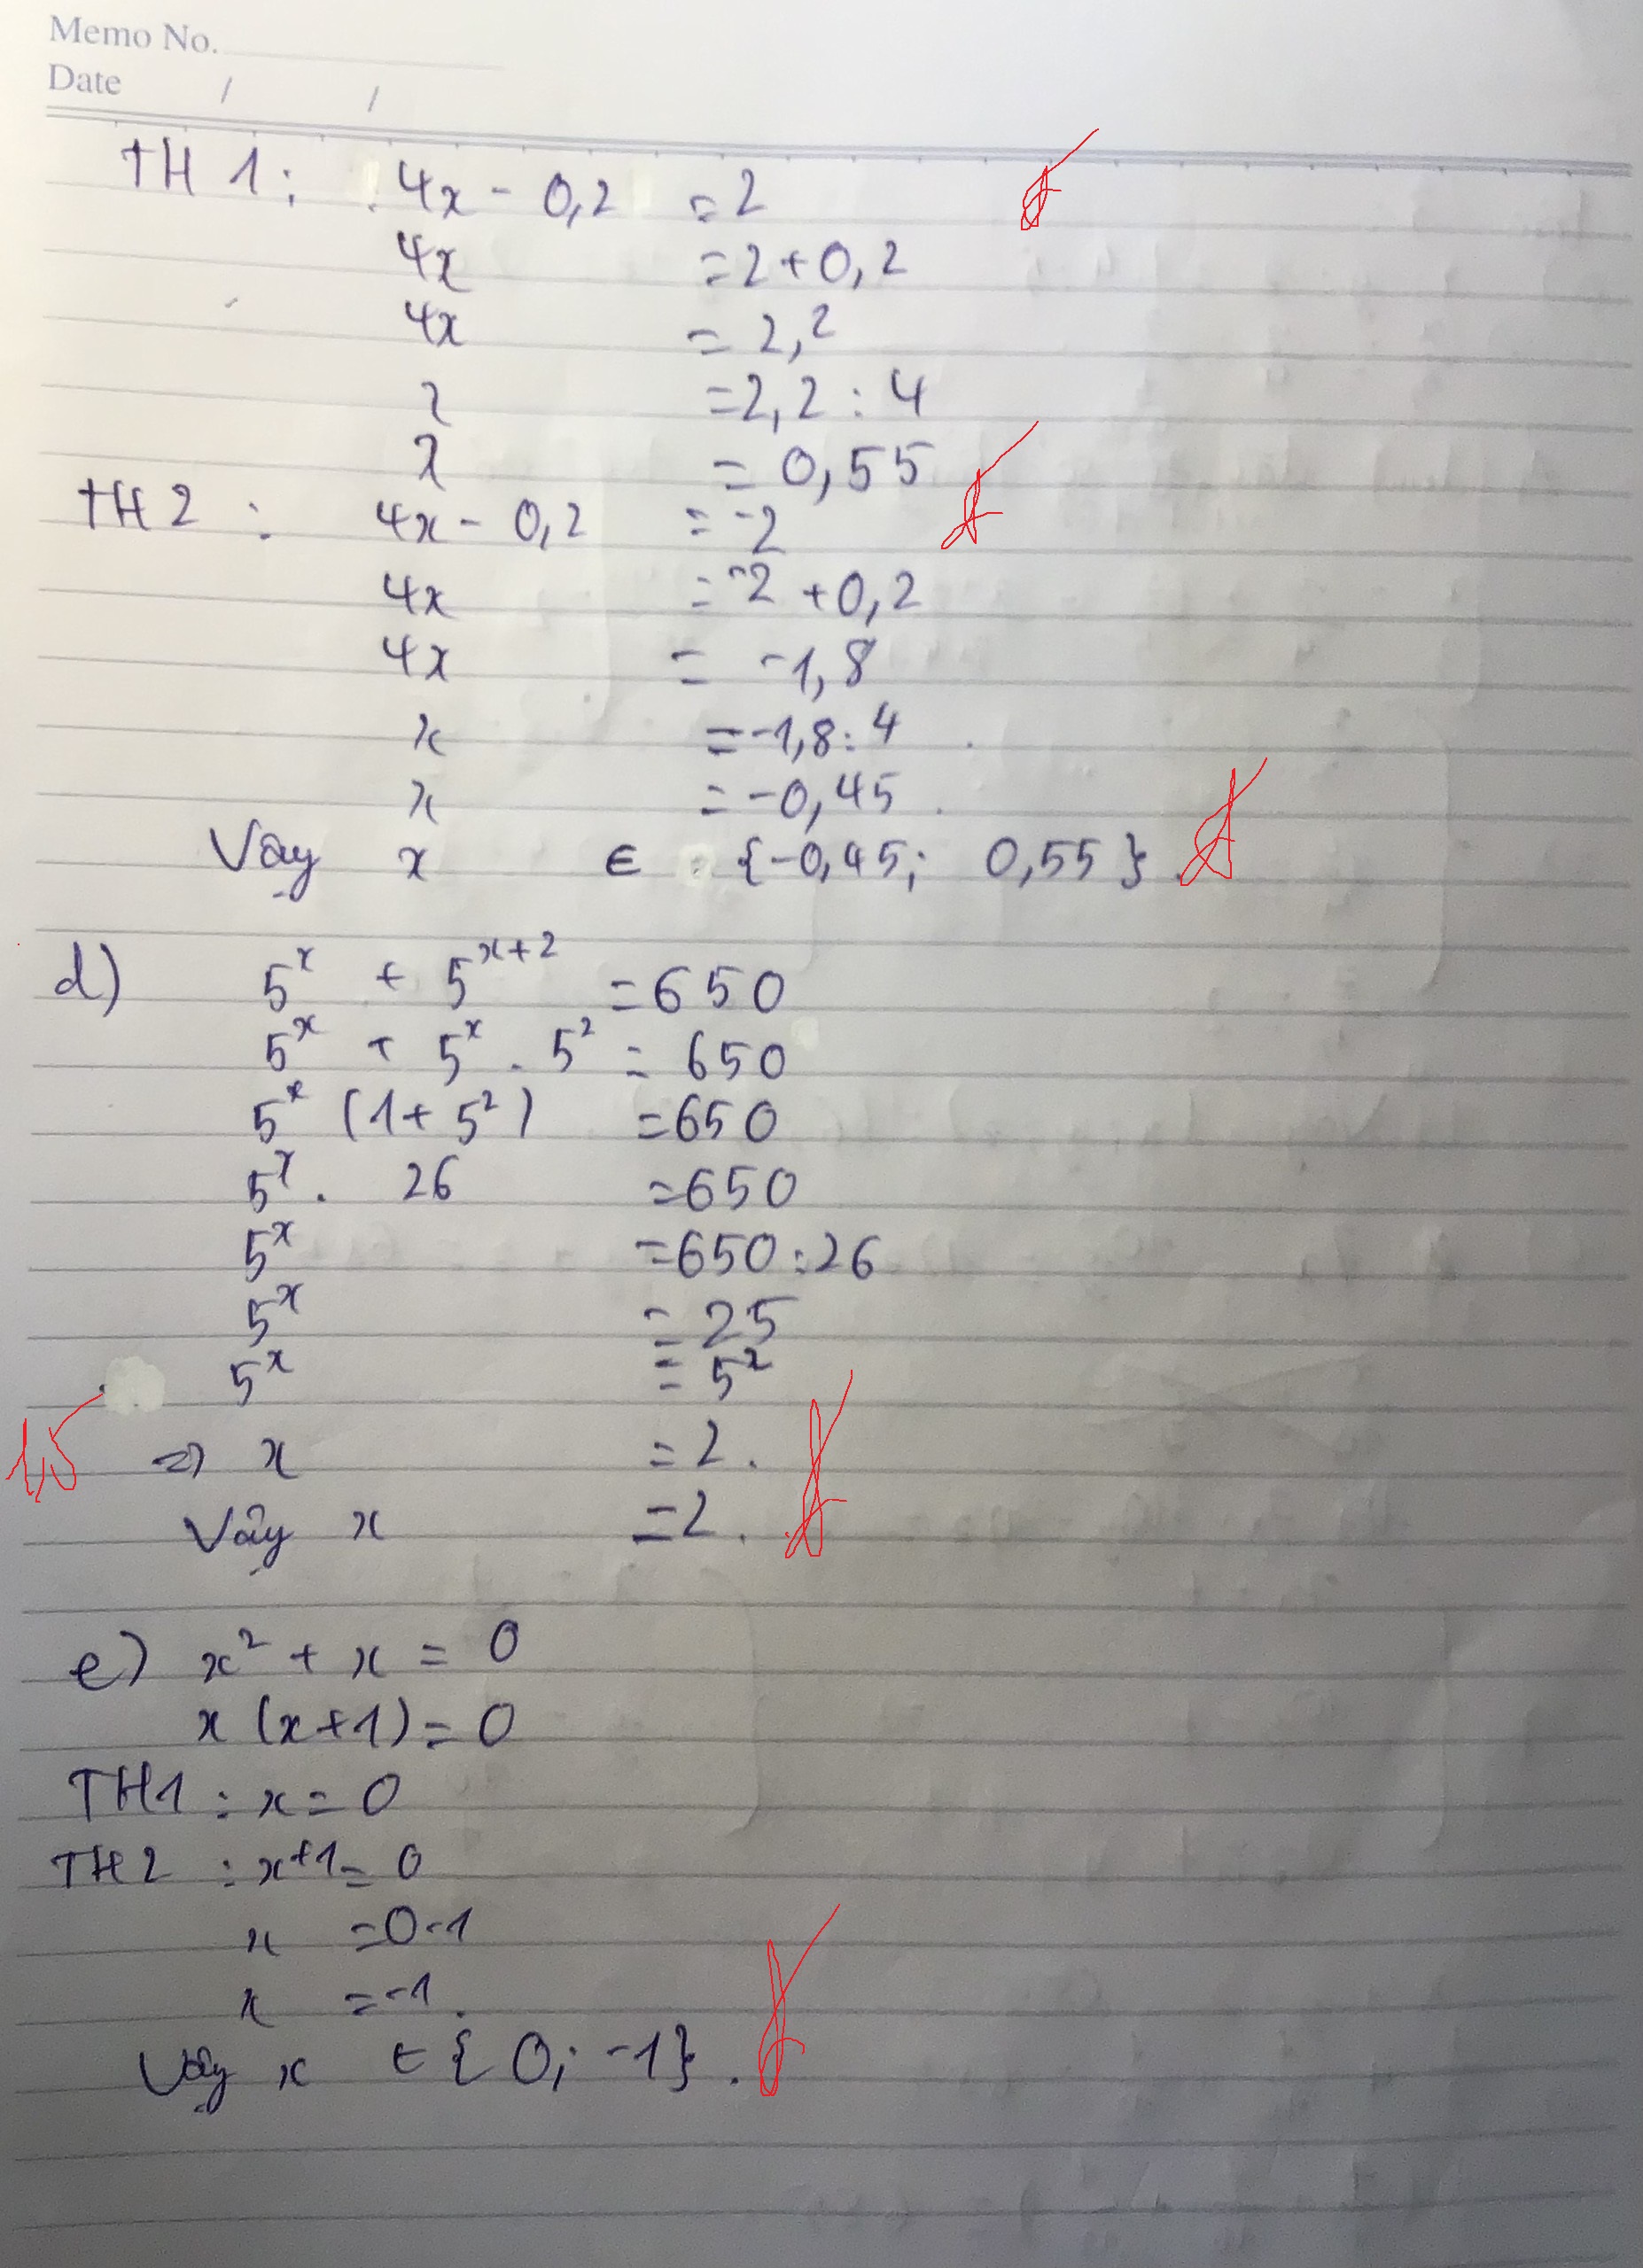 Memo No.
Date / /
TH 1: 4x - 0,2 = 2
4x = 2 + 0,2
4x = 2,2
x = 2,2 : 4
x = 0,55
TH 2 : 4x - 0,2 = -2
4x = -2 + 0,2
4x = -1,8
x = -1,8 : 4
x = -0,45
Vậy x ∈ {-0,45; 0,55}.
d) 5ˣ + 5ˣ⁺² = 650
5ˣ + 5ˣ . 5² = 650
5ˣ (1 + 5²) = 650
5ˣ . 26 = 650
5ˣ = 650 : 26
5ˣ = 25
5ˣ = 5²
1,5
=> x = 2.
Vậy x = 2.
e) x² + x = 0
x (x+1) = 0
TH1 : x = 0
TH2 : x+1 = 0
x = 0-1
x = -1.
Vậy x ∈ {0; -1}.